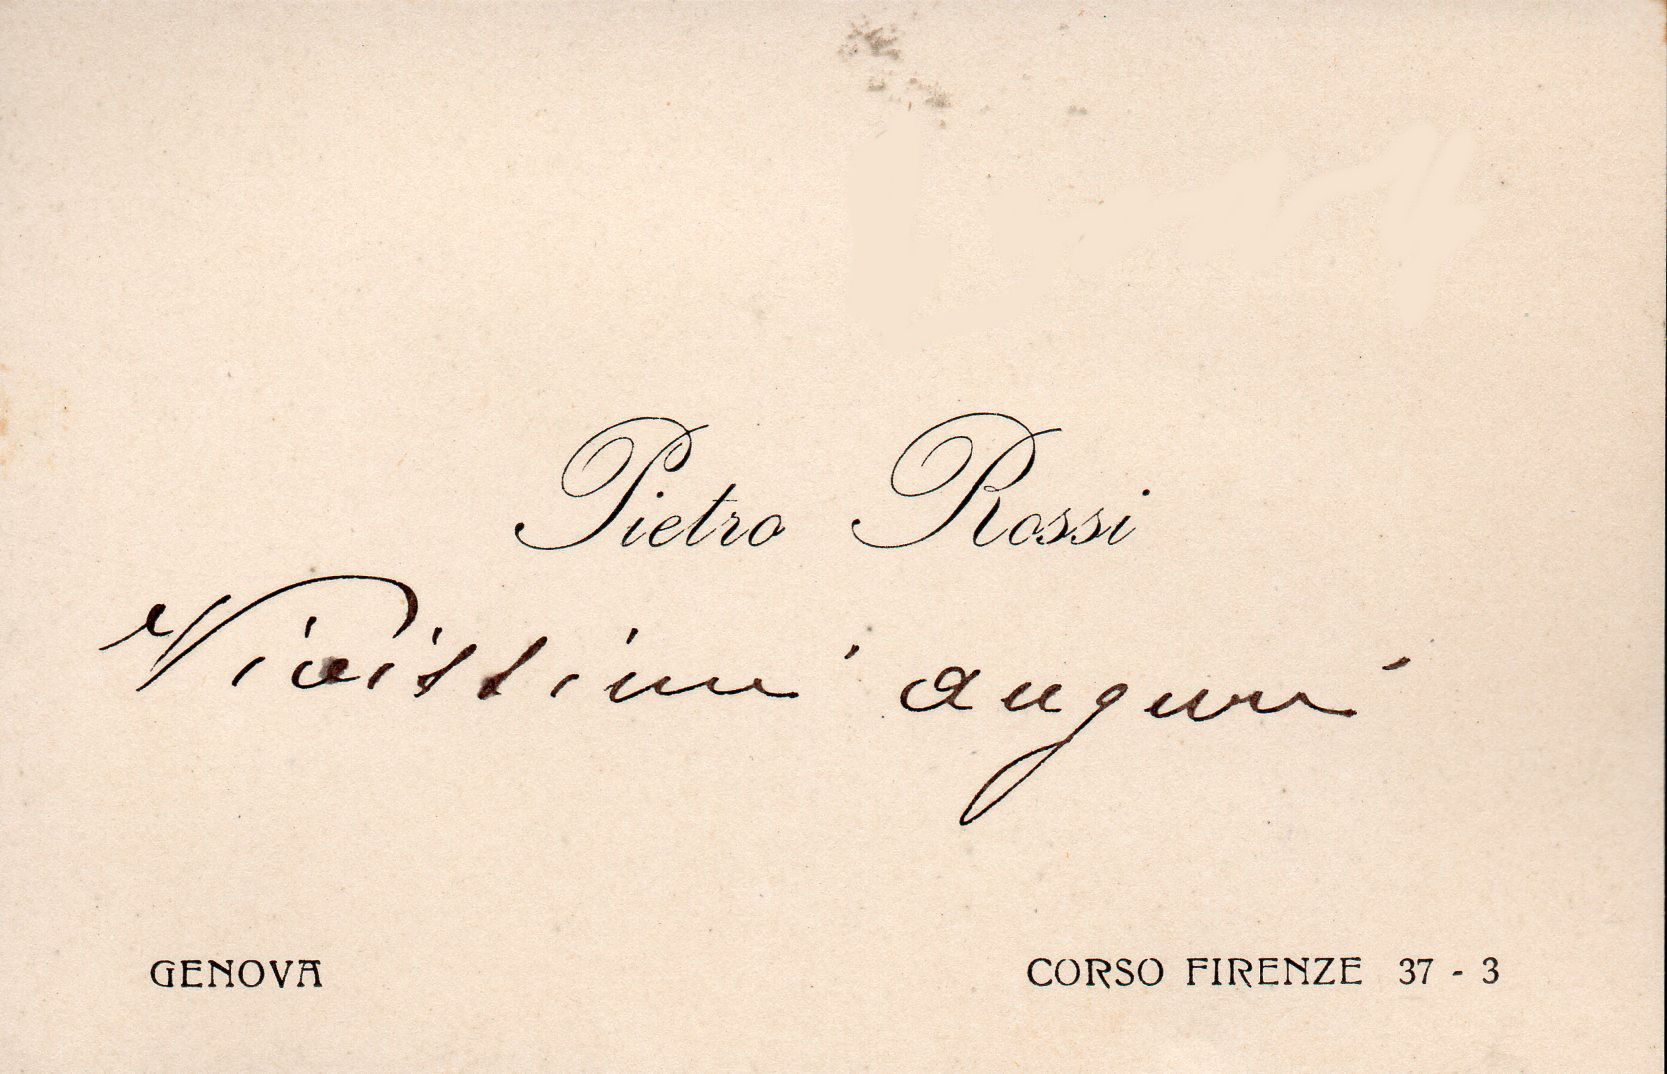 Pietro Rossi
Vivissimi auguri
GENOVA
CORSO FIRENZE 37 - 3